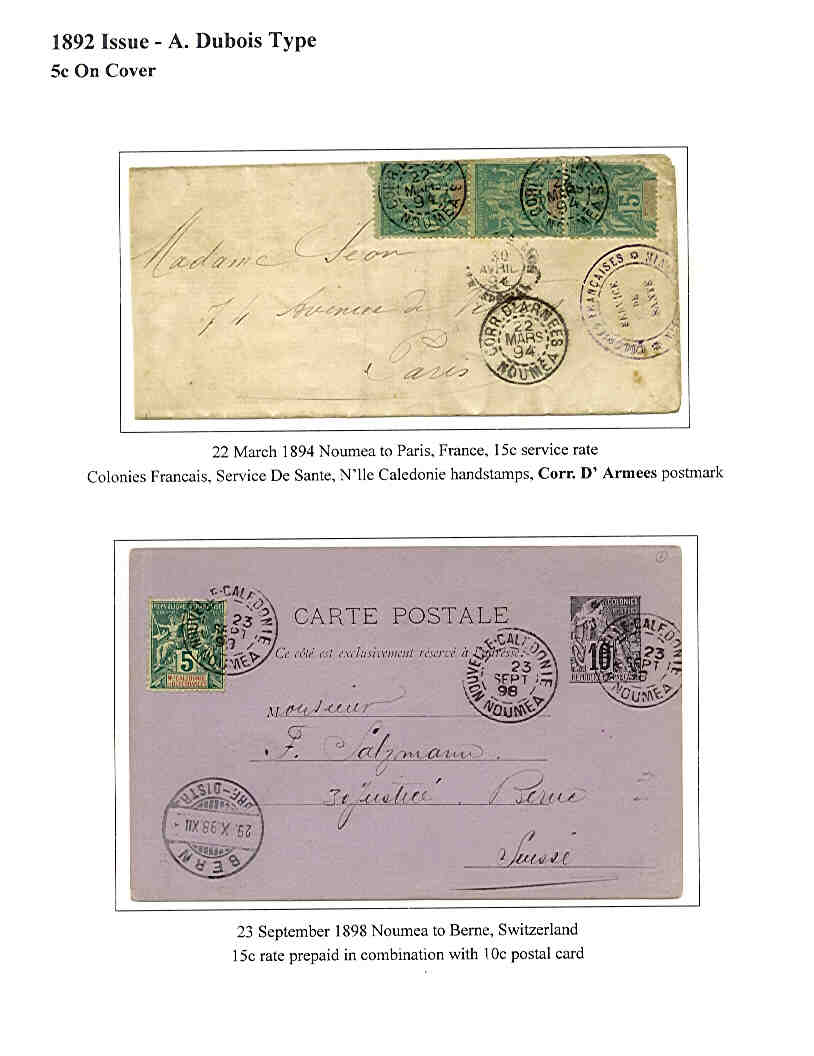 1892 Issue - A. Dubois Type
5c On Cover
CORR. D'ARMEES
22
MARS
94
NOUMEA
5
Madame Leon
30
AVRIL
94
74 Avenue de
Paris
CORR. D'ARMEES
22
MARS
94
NOUMEA
FRANÇAISES
SERVICE
DE
SANTE
22 March 1894 Noumea to Paris, France, 15c service rate
Colonies Francais, Service De Sante, N'lle Caledonie handstamps, Corr. D' Armees postmark
REPUBLIQUE FRANCAISE
5
CARTE POSTALE
COLONIES
POSTES
10
Ce côté est exclusivement réservé à l'adresse.
NOUVELLE-CALEDONIE
23
SEPT
98
NOUMEA
Monsieur
F. Salzmann
30 Justice . Berne
Suisse
BERN
29. X. 98. XII -
23 September 1898 Noumea to Berne, Switzerland
15c rate prepaid in combination with 10c postal card